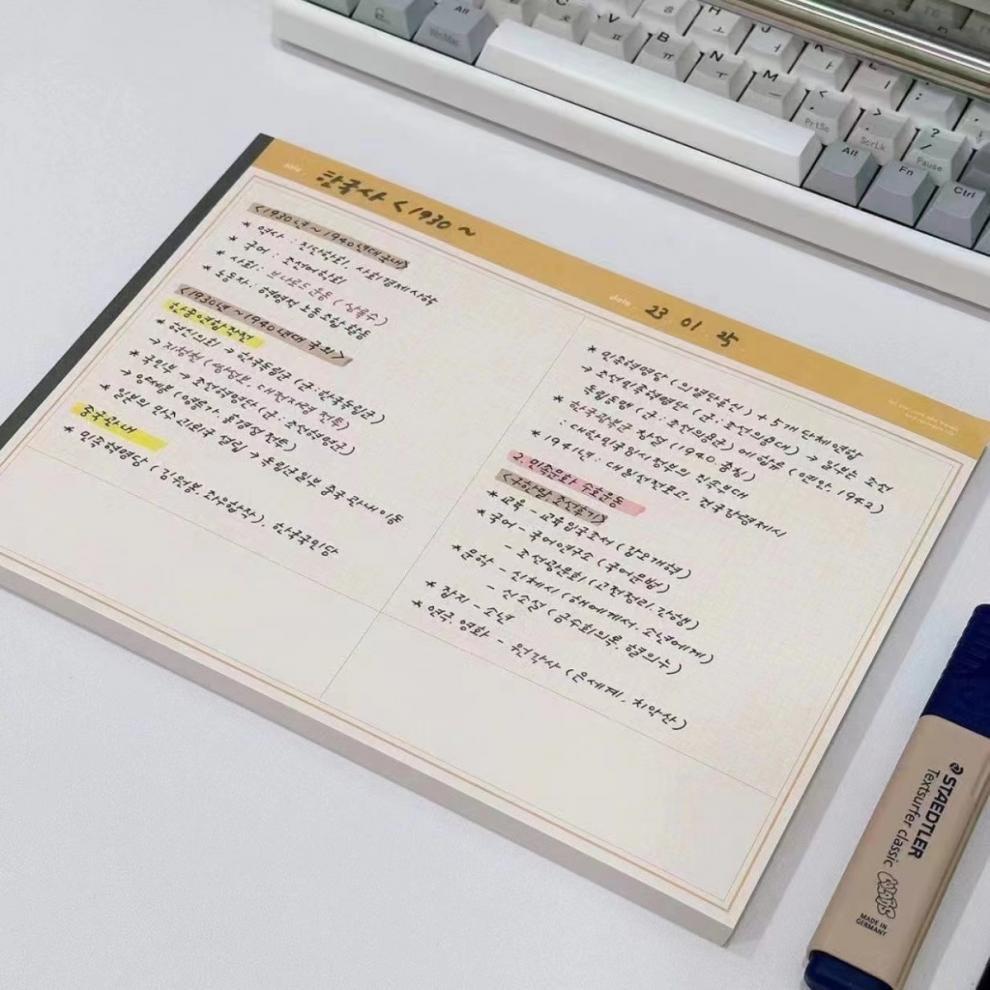 date.
한국사 <1930~
date. 23 01 25
<1930년~1940년대 국내>
* 역사 : 진단학회, 사회경제사학
* 국어 : 조선어학회
* 사회 : 브나로드 운동 (심훈)
* 노동자 : 혁명적 노동조합 활동
<1930년~1940년대 국외>
한중연합작전
* 혁신의회 → 한국독립군 (군:한국독립군)
→ 지청천 (쌍성보 대전자령 전투)
* 국민부 → 조선혁명당 (군:조선혁명군)
→ 양세봉 (영릉가 흥경성 전투)
* 일본의 만주 진료국 건립 → 독립군 일부 중국 관내 이동
중국관내
* 민족혁명당 (김원봉, 조소앙), 한국국민당
* 민족혁명당 (의열단 중심) + 5개 단체 연합
→ 조선민족혁명당 (군:조선의용대) → 일부는 조선
독립동맹 (군:조선의용군)에 합류 (연안, 1942)
* 한국광복군 창설 (1940 충칭)
: 대한민국임시정부의 직속부대
* 1941년 : 대일선전포고, 건국강령 제시
2. 민족문화 수호운동
* 교육 - 교육입국조서 (갑오개혁)
* 국어 - 국어연구소 (국어문법)
- 조선광문회 (고전정리, 간행)
* 문학 - 신체시 (해에게서 소년에게)
- 신소설 (금수회의록, 혈의누)
* 잡지 - 소년
* 연극, 영화 - 원각사 (은세계, 치악산)
Alt
Win/Mac
H
J
K
L
V
B
N
M
PrtSc
ScrLk
Pause
Alt
Fn
Ctrl
STAEDTLER
Textsurfer classic
MADE IN
GERMANY